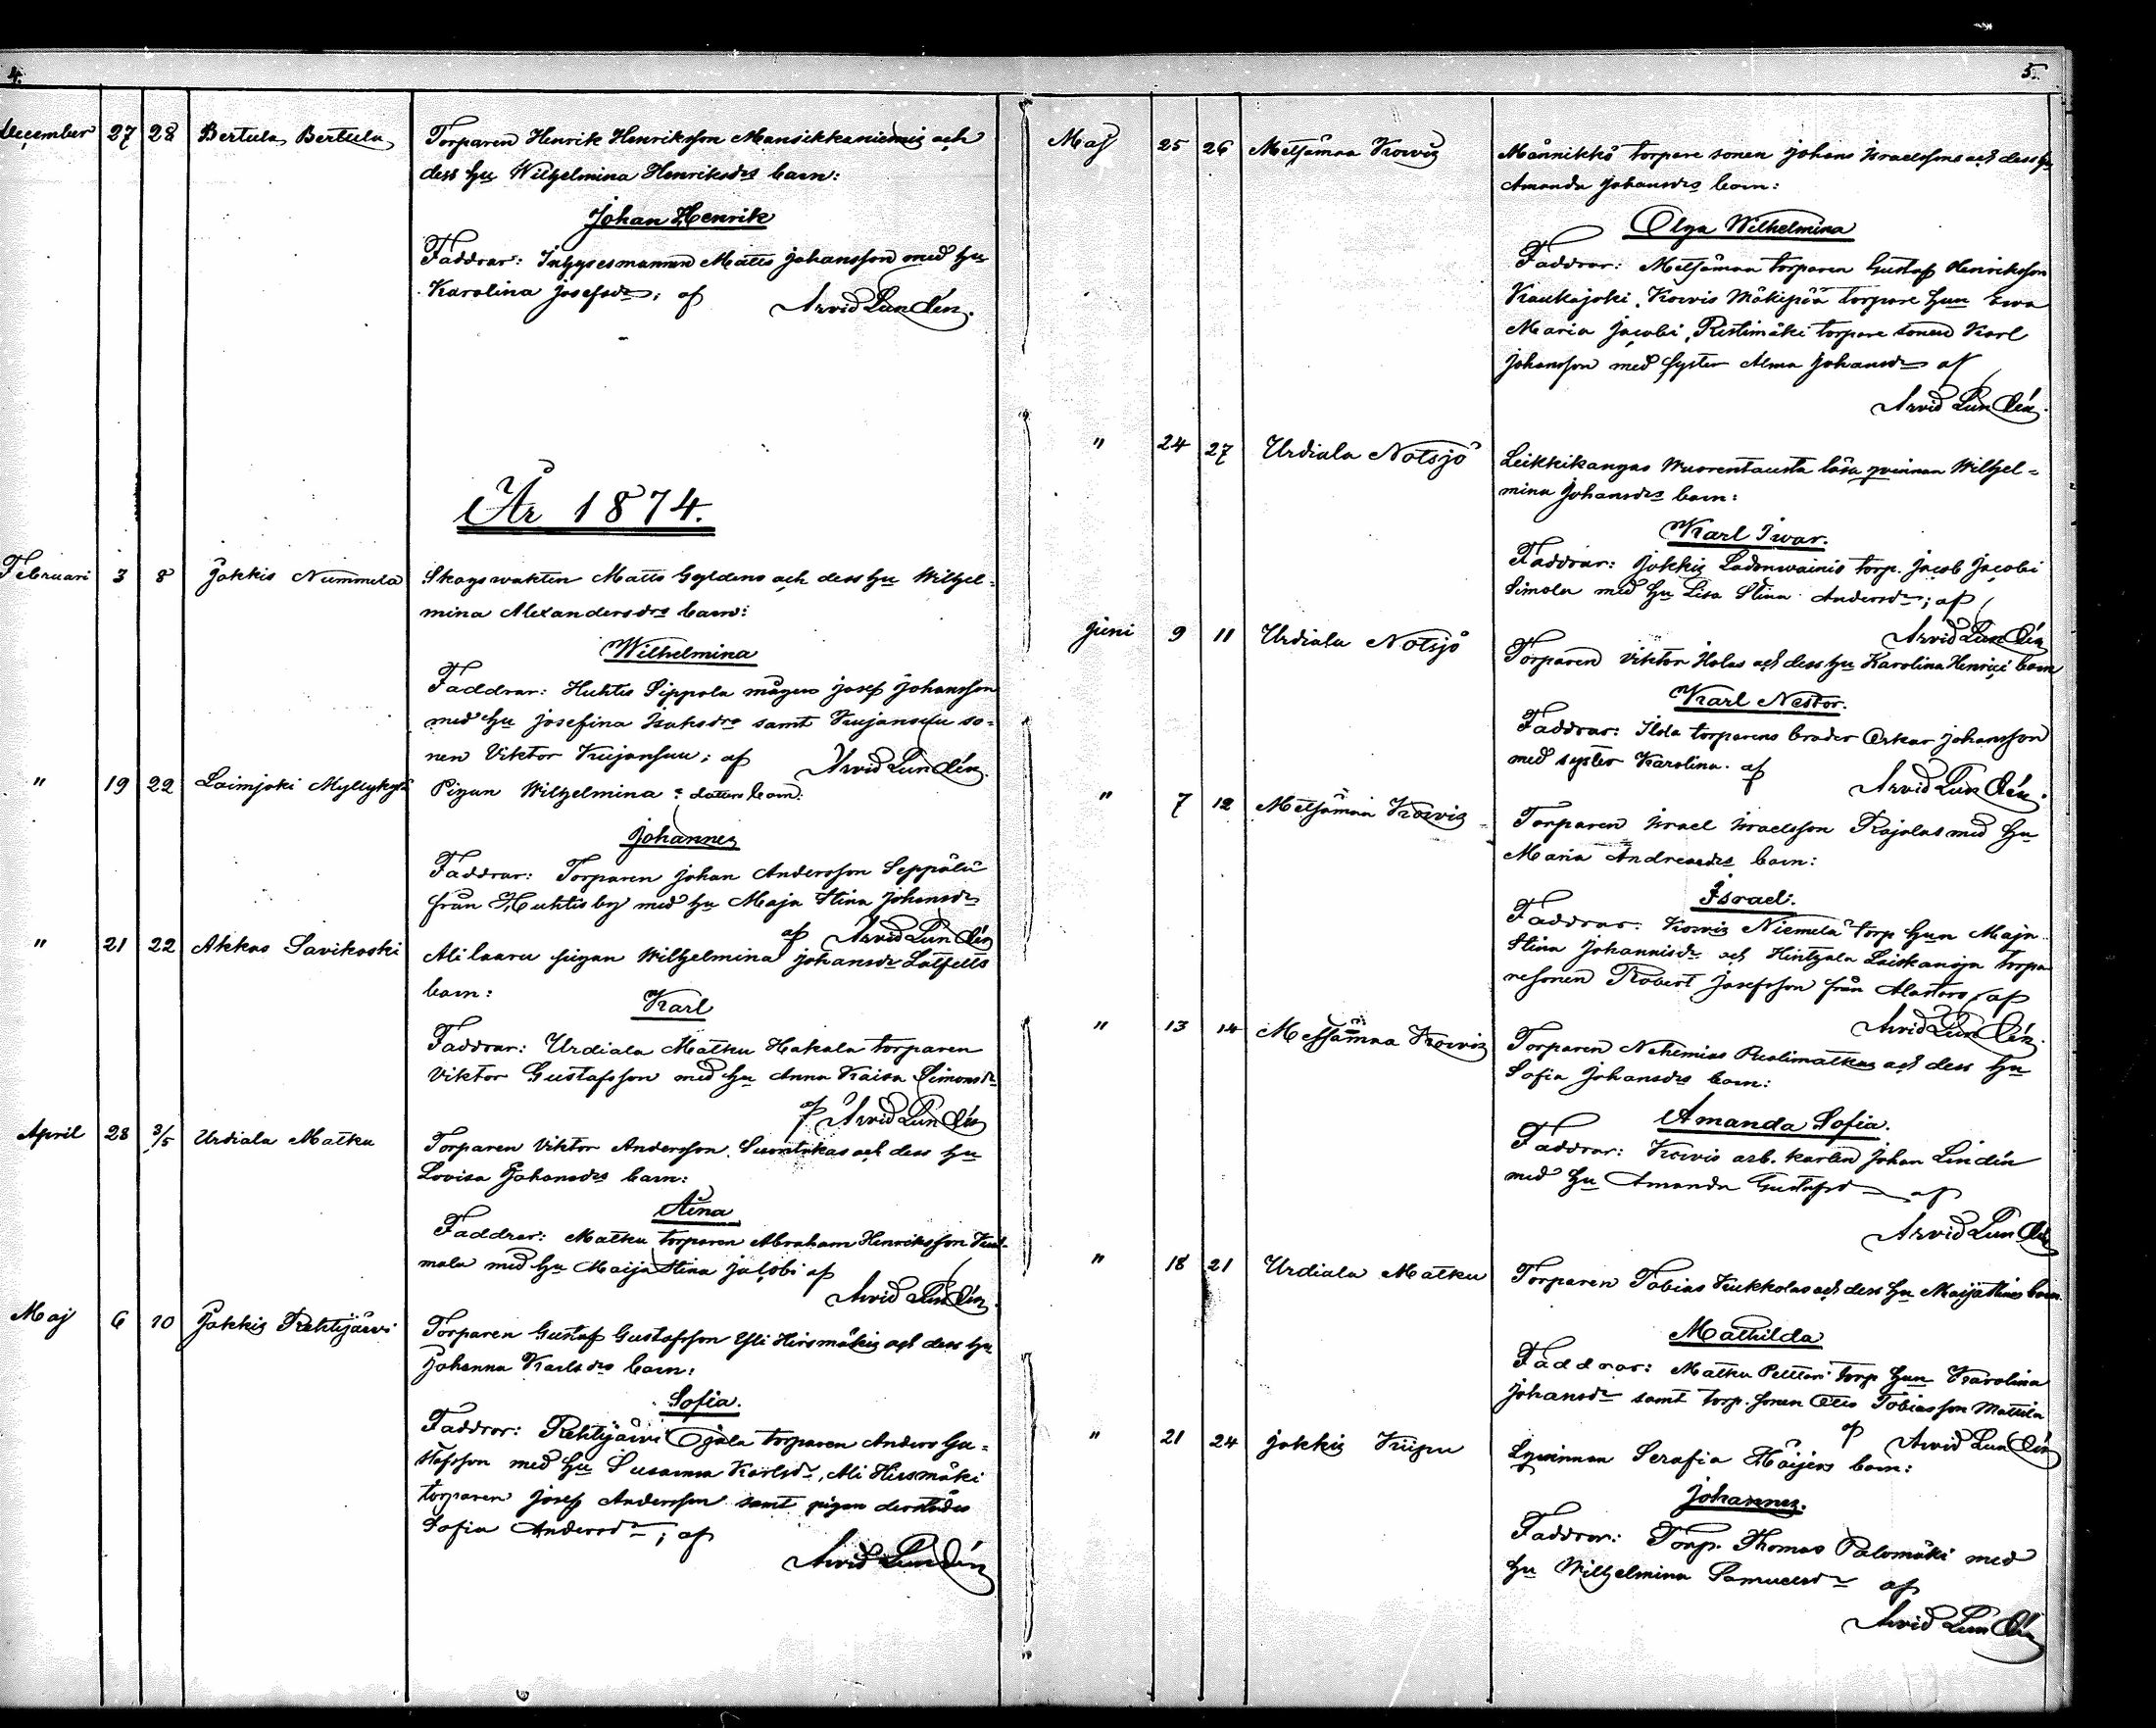 4.
December 27 28 Bertula Bertula Torparen Henrik Henriksson Mansikkaniemis och
dess hu Wilhelmina Henriksdrs barn:
Johan Henrik
Faddrar: Inhysesmannen Matts Johansson med hu
Karolina Josefsdr; af Arvid Lundén.
År 1874.
Februari 3 8 Jokkis Nummela Skogswakten Matts Gyldens och dess hu Wilhel=
mina Alexandersdrs barn:
Wilhelmina
Faddrar: Huhtis Sippola mågen Josef Johansson
med hu Josefina Isaksdrs samt Kujansuu so=
nen Viktor Kujansuu; af Arvid Lundén.
" 19 22 Loimjoki Myllykylä Pigan Wilhelmina dotters barn:
Johannes
Faddrar: Torparen Johan Andersson Seppälä
från Huhtis by med hu Maja Stina Johansdr
af Arvid Lundén
" 21 22 Akkas Savikoski Ali laaru pigan Wilhelmina Johansdr Lätfelts
barn:
Karl
Faddrar: Urdiala Matku Hakala torparen
Viktor Gustafsson med hu Anna Kaisa Simonsdr
af Arvid Lundén
April 28 3/5 Urdiala Matku Torparen Viktor Andersson Suontakas och dess hu
Lovisa Johansdrs barn:
Aina
Faddrar: Matku torparen Abraham Henriksson
mala med hu Maija Stina Jacobi af
Arvid Lundén.
Maj 6 10 Jokkis Rehtijärvi Torparen Gustaf Gustafsson Yli Hirsmäkis och dess hu
Johanna Karlsdrs barn:
Sofia.
Faddrar: Rehtijärvi Ojala torparen Anders Gu=
stafsson med hu Susanna Karlsdr, Ali Hirsmäki
torparen Josef Andersson samt pigan derstädes
Sofia Andersdr; af
Arvid Lundén
5.
Maj 25 26 Metsämaa Korvis Männikkö torpare sonen Johans Israelssons och dess hu
Amanda Johansdrs barn:
Olga Wilhelmina
Faddrar: Metsämaa torparen Gustaf Henriksson
Kaukajoki, Korvis Mäkipää torpare hun Ewa
Maria Jacobi, Ristimäki torpare sonen Karl
Johansson med syster Alma Johansdr af
Arvid Lundén.
" 24 27 Urdiala Notsjö Leikkikangas Wuorentausta lösa qvinnan Wilhel=
mina Johansdrs barn:
Karl Iwar.
Faddrar: Jokkis Ladonwainis torp. Jacob Jacobi
Simola med hu Lisa Stina Andersdr; af
Arvid Lundén
Juni 9 11 Urdiala Notsjö Torparen Viktor Holas och dess hu Karolina Henrici barn
Karl Nestor.
Faddrar: Ilola torparens broder Oskar Johansson
med syster Karolina. af
Arvid Lundén.
" 7 12 Metsämaa Korvis Torparen Israel Israelsson Rajalas med hu
Maria Andreasdrs barn:
Israel.
Faddrar. Korvis Niemelä torp hun Maja
Stina Johannisdr och Hintzala torpa
resonen Robert Josefsson från Alastaro, af
Arvid Lundén.
" 13 14 Metsämaa Korvis Torparen Nehemias Puolimatkas och dess hu
Sofia Johansdrs barn:
Amanda Sofia.
Faddrar: Korvis arb. karlen Johan Lindén
med hu Amanda Gustafsd af
Arvid Lundén
" 18 21 Urdiala Matku Torparen Tobias Kukkolas och dess hu Maija Stinas barn.
Mathilda
Faddrar: Matku Pelttari torp hun Karolina
Johansdr samt torp. sonen Otto Tobiasson Mattila
af Arvid Lundén
" 21 24 Jokkis Kiipu Lqvinnan Serafia Häijers barn:
Johannes.
Faddrar: Torp. Thomas Palomäki med
hu Wilhelmina Samuelsdr af
Arvid Lundén